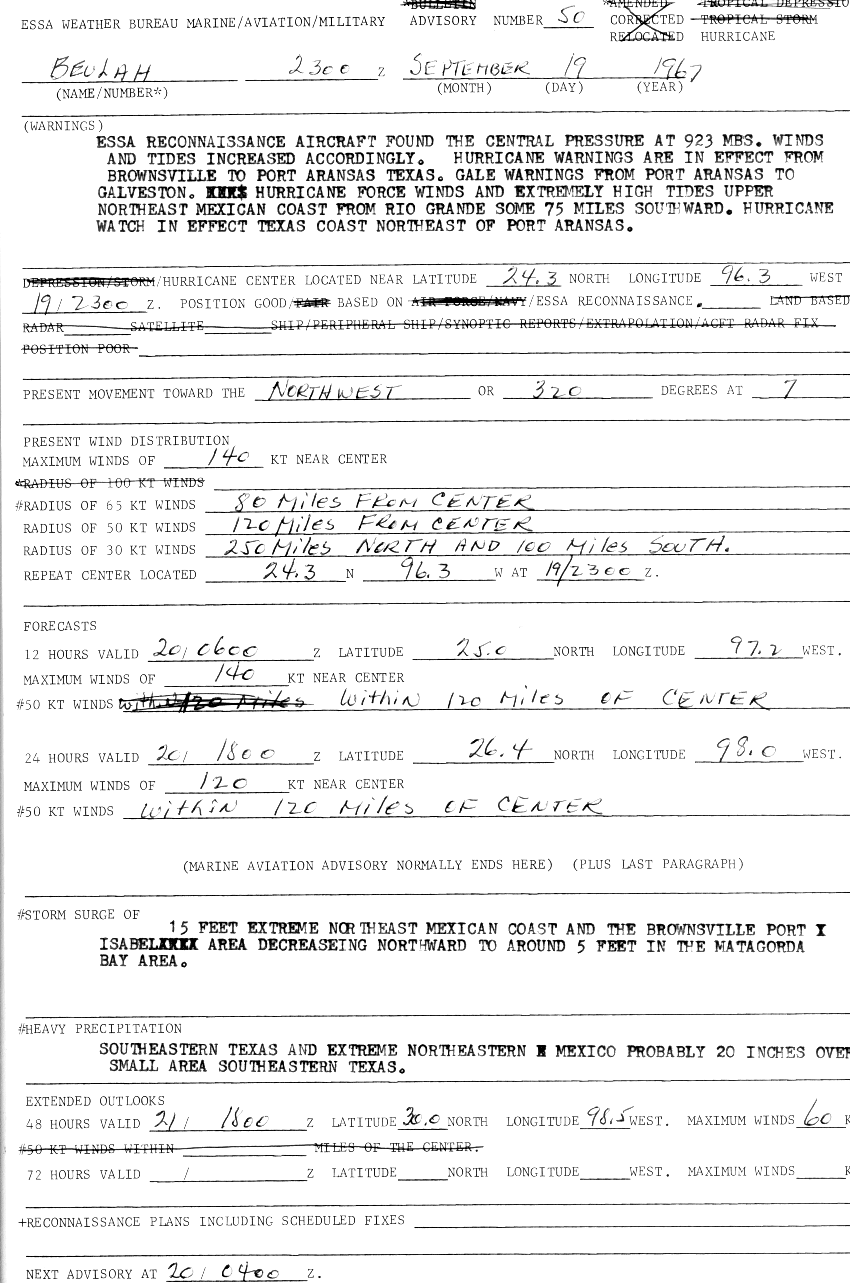 *BULLETIN *AMENDED TROPICAL DEPRESSIO
ESSA WEATHER BUREAU MARINE/AVIATION/MILITARY ADVISORY NUMBER 50 CORRECTED TROPICAL STORM
RELOCATED HURRICANE
BEULAH 2300 Z SEPTEMBER 19 1967
(NAME/NUMBER*) (MONTH) (DAY) (YEAR)
(WARNINGS)
ESSA RECONNAISSANCE AIRCRAFT FOUND THE CENTRAL PRESSURE AT 923 MBS. WINDS
AND TIDES INCREASED ACCORDINGLY. HURRICANE WARNINGS ARE IN EFFECT FROM
BROWNSVILLE TO PORT ARANSAS TEXAS. GALE WARNINGS FROM PORT ARANSAS TO
GALVESTON. HURRICANE FORCE WINDS AND EXTREMELY HIGH TIDES UPPER
NORTHEAST MEXICAN COAST FROM RIO GRANDE SOME 75 MILES SOUTHWARD. HURRICANE
WATCH IN EFFECT TEXAS COAST NORTHEAST OF PORT ARANSAS.
DEPRESSION/STORM/HURRICANE CENTER LOCATED NEAR LATITUDE 24.3 NORTH LONGITUDE 96.3 WEST
19/2300 Z. POSITION GOOD/FAIR BASED ON AIR FORCE/NAVY/ESSA RECONNAISSANCE. LAND BASED
RADAR SATELLITE SHIP/PERIPHERAL SHIP/SYNOPTIC REPORTS/EXTRAPOLATION/ACFT RADAR FIX
POSITION POOR
PRESENT MOVEMENT TOWARD THE NORTHWEST OR 320 DEGREES AT 7
PRESENT WIND DISTRIBUTION
MAXIMUM WINDS OF 140 KT NEAR CENTER
*RADIUS OF 100 KT WINDS
#RADIUS OF 65 KT WINDS 80 Miles FROM CENTER
RADIUS OF 50 KT WINDS 120 Miles FROM CENTER
RADIUS OF 30 KT WINDS 250 Miles NORTH AND 100 Miles SOUTH.
REPEAT CENTER LOCATED 24.3 N 96.3 W AT 19/2300 Z.
FORECASTS
12 HOURS VALID 20/0600 Z LATITUDE 25.0 NORTH LONGITUDE 97.2 WEST.
MAXIMUM WINDS OF 140 KT NEAR CENTER
#50 KT WINDS within 120 Miles Within 120 Miles OF CENTER
24 HOURS VALID 20/ 1800 Z LATITUDE 26.4 NORTH LONGITUDE 98.0 WEST.
MAXIMUM WINDS OF 120 KT NEAR CENTER
#50 KT WINDS Within 120 Miles OF CENTER
(MARINE AVIATION ADVISORY NORMALLY ENDS HERE) (PLUS LAST PARAGRAPH)
#STORM SURGE OF
15 FEET EXTREME NORTHEAST MEXICAN COAST AND THE BROWNSVILLE PORT X
ISABELXXXX AREA DECREASEING NORTHWARD TO AROUND 5 FEET IN THE MATAGORDA
BAY AREA.
#HEAVY PRECIPITATION
SOUTHEASTERN TEXAS AND EXTREME NORTHEASTERN MEXICO PROBABLY 20 INCHES OVER
SMALL AREA SOUTHEASTERN TEXAS.
EXTENDED OUTLOOKS
48 HOURS VALID 21/ 1800 Z LATITUDE 30.0 NORTH LONGITUDE 98.5 WEST. MAXIMUM WINDS 60 K
#50 KT WINDS WITHIN MILES OF THE CENTER.
72 HOURS VALID / Z LATITUDE NORTH LONGITUDE WEST. MAXIMUM WINDS K
+RECONNAISSANCE PLANS INCLUDING SCHEDULED FIXES
NEXT ADVISORY AT 20/ 0400 Z.